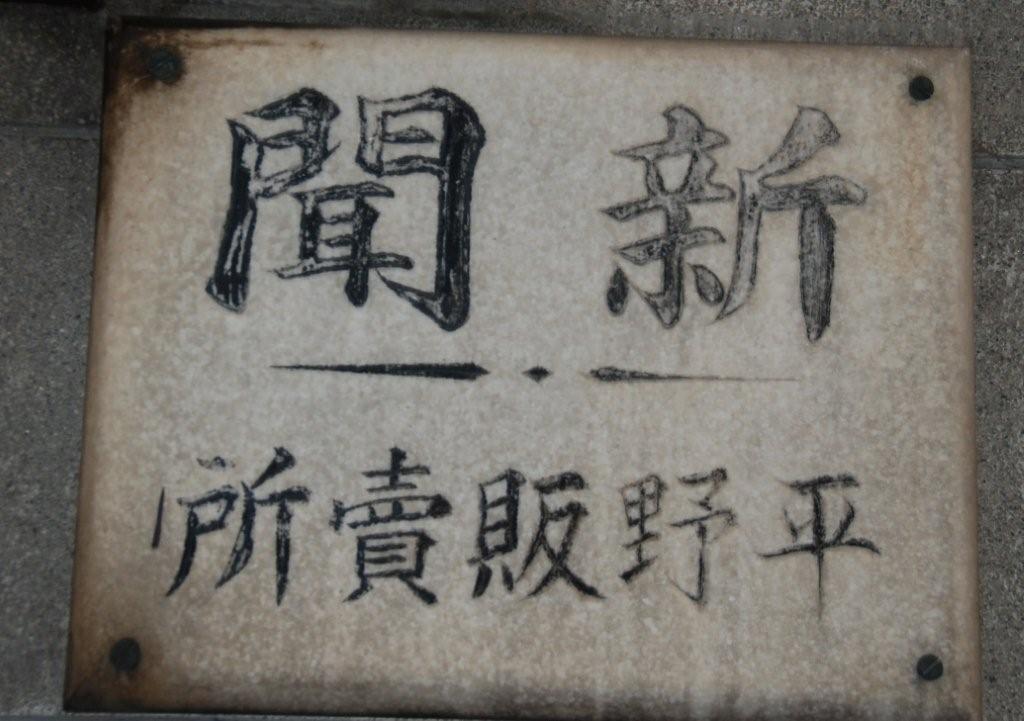 新聞
平野販賣所